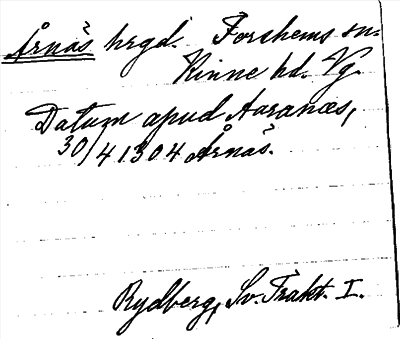 Årnäs hrgd. Forshems sn.
Kinne hd. Vg.
Datum apud Aaranæs,
30/4 1304 Årnäs.
Rydberg, Sv. Trakt. I.